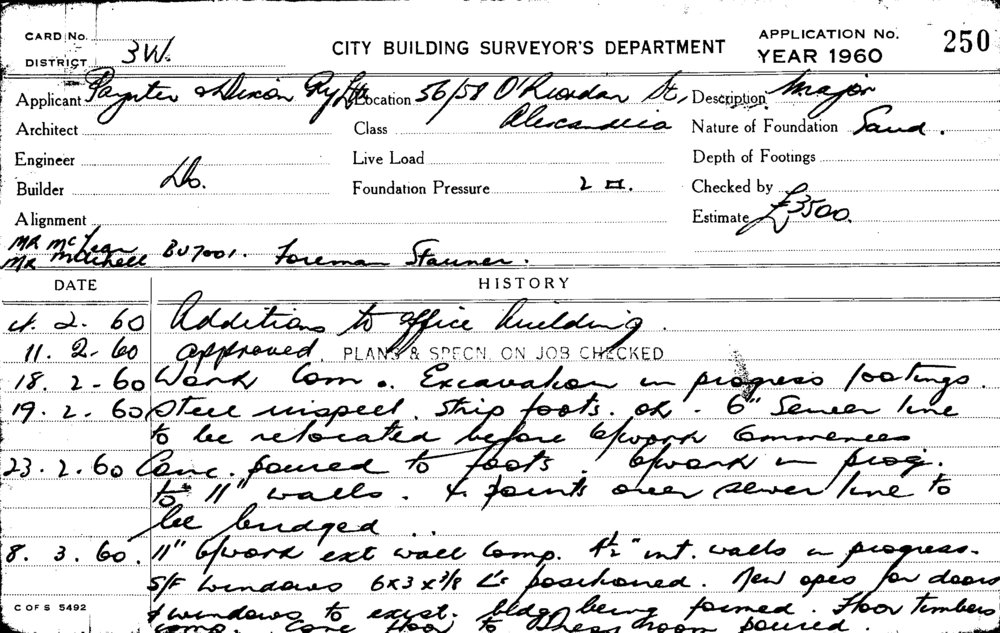 CARD No.
DISTRICT 3W.
CITY BUILDING SURVEYOR'S DEPARTMENT
APPLICATION No. 250
YEAR 1960
Applicant Paynter & Dixon Pty Ltd Location 56/58 O'Riordan St, Description Major
Alexandria
Architect Class Nature of Foundation Sand.
Engineer Live Load Depth of Footings
Builder Do. Foundation Pressure 2 □. Checked by
Alignment Estimate £3500.
MR McLean
MR Mitchell BU7001. Foreman Stauner.
DATE HISTORY
4. 2. 60 Additions to office building.
11. 2. 60 approved. PLANS & SPECN. ON JOB CHECKED
18. 2. 60 Work Com. Excavation in progress footings.
19. 2. 60 Steel inspect. Strip foots. ok. 6" Sewer line
to be relocated before b/work commences
23. 2. 60 Conc. poured to foots. b/work in prog.
to 11" walls. & joints over sewer line to
be bridged..
8. 3. 60. 11" b/work ext wall Comp. 4½" int. walls in progress.
S/F windows 6x3x3/8 L's positioned. New opes for doors
& windows to exist. bldg being formed. Floor timbers
comp. Conc floor to room poured.
C OF S 5492